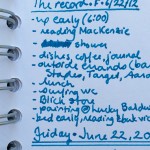 The record. F. 6/22/12
- up early (6:00)
- reading MacKenzie
- shower
- dishes, coffee, journal
- outside errands (ba
Staples, Target, Aaro
- lunch
- WC
- Blick store
- painting @ Chucky Baldwi
- bed early, reading
Friday • June 22, 20